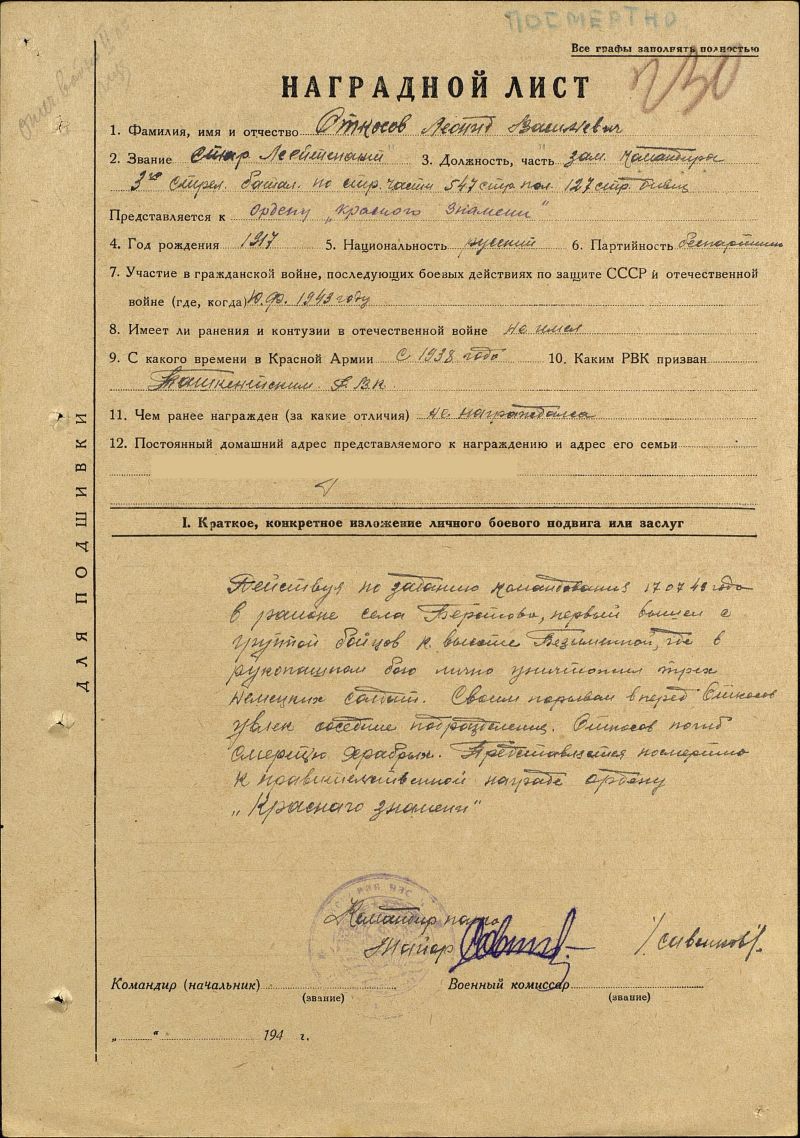 ПОСМЕРТНО
Все графы заполнять полностью
НАГРАДНОЙ ЛИСТ
1. Фамилия, имя и отчество Откосов Леонид Васильевич
2. Звание стар. Лейтенант 3. Должность, часть зам. командира
3го стрел. батал. по стр. части 547 стр. пол. 127 стр. дивиз
Представляется к ордену „Красного Знамени"
4. Год рождения 1917 5. Национальность русский 6. Партийность беспартийн
7. Участие в гражданской войне, последующих боевых действиях по защите СССР и отечественной
войне (где, когда) Ю.Ф. 1943 году
8. Имеет ли ранения и контузии в отечественной войне не имел
9. С какого времени в Красной Армии с 1938 года 10. Каким РВК призван
Ташкентским РВК
11. Чем ранее награжден (за какие отличия) не награждался
12. Постоянный домашний адрес представляемого к награждению и адрес его семьи
I. Краткое, конкретное изложение личного боевого подвига или заслуг
Действуя по заданию командования 17 07 43 года
в районе села первый вышел с
группой бойцов к высоте Безименной, где в
рукопашном бою лично уничтожил трех
немецких солдат. Своим порывом вперед Откосов
увлек соседние подразделения. Откосов погиб
смертью храбрых. Представляется посмертно
к правительственной награде ордену
„Краснаго знамени"
Командир полка
Майор
Командир (начальник) Военный комиссар
(звание) (звание)
„ " 194 г.
ДЛЯ ПОДШИВКИ